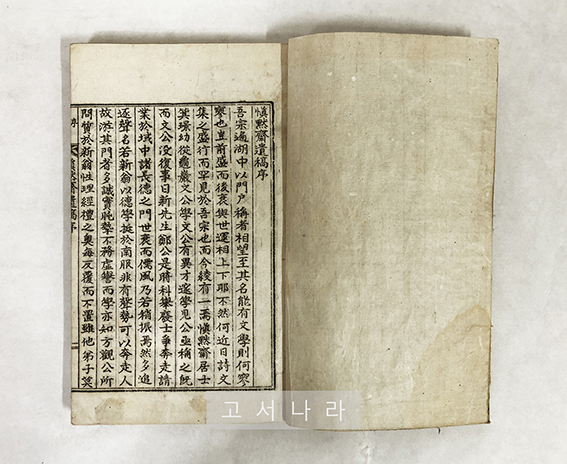 愼默齋遺稿序
吾宗遍湖中以門戶稱者相望至其名能有文學則何寥
寥也豈前盛而後衰與世運相上下耶不然何近日詩文
集之盛行而罕見於吾宗也而今綾有一焉愼默齋居士
箕璟幼從龜巖文公學文公有異才遂學見公亟稱之旣
而文公沒復事日新先生鄭公是時科擧廢士爭奔走請
業於域中諸長德之門世衰而儒風乃若稍振焉然多追
逐聲名若新翁以德學挺於南服非有聲勢可以奔走人
故游其門者多誠實耽勢不務虛譽而學亦如方觀公所
問質於新翁性理經禮之奧每反覆而不置雖他弟子笑
序
愼默齋遺稿序
一
고서나라